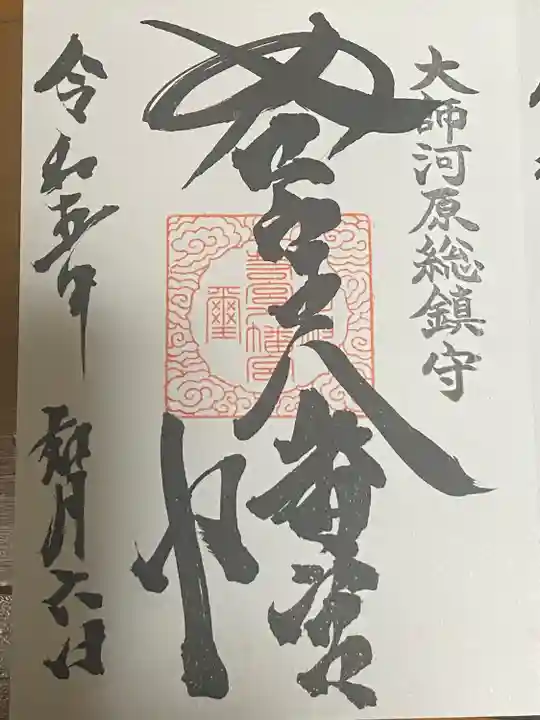 大師河原総鎮守
若宮八幡宮
令和五年 月六日